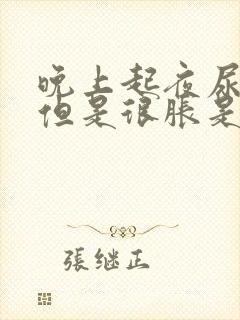 晚上起夜尿
但是很脹是
張继正